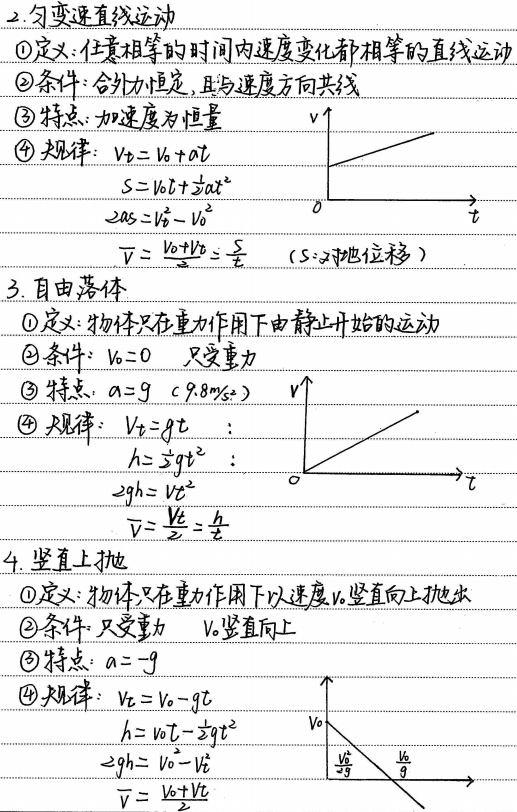 2.匀变速直线运动
①定义:任意相等的时间内速度变化都相等的直线运动
②条件:合外力恒定,且与速度方向共线
③特点:加速度为恒量
④规律: Vt=V₀+at
S=V₀t+½at²
2as=Vt²-V₀²
V̅=(V₀+Vt)/2=S/t (S:对地位移)
V
O
t
3.自由落体
①定义:物体只在重力作用下由静止开始的运动
②条件: V₀=0 只受重力
③特点: a=g (9.8m/s²)
④规律: Vt=gt :
h=½gt² :
2gh=Vt²
V̅=Vt/2=h/t
V
O
t
4.竖直上抛
①定义:物体只在重力作用下以速度V₀竖直向上抛出
②条件:只受重力 V₀竖直向上
③特点: a=-g
④规律: Vt=V₀-gt
h=V₀t-½gt²
2gh=V₀²-Vt²
V̅=(V₀+Vt)/2
V₀
V₀²/2g
V₀/g